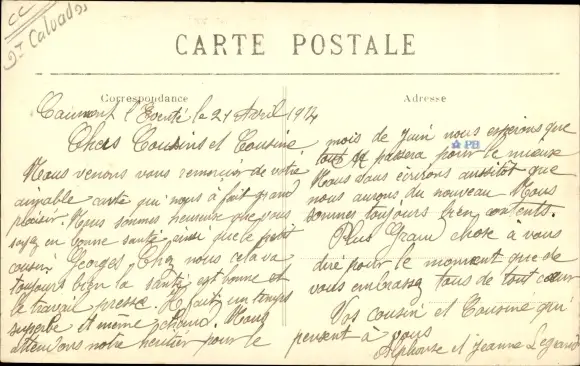 CC
Dt Calvados
CARTE POSTALE
Correspondance
Adresse
Caumont l'Eventé le 21 Avril 1914
Chers Cousins et Cousine,
Nous venons vous remercier de votre
aimable carte qui nous a fait grand
plaisir. Nous sommes heureux que vous
soyez en bonne santé ainsi que le petit
cousin Georges. Chez nous cela va
toujours bien la santé est bonne et
le travail presse. Il fait un temps
superbe et même chaud. Nous
attendons notre héritier pour le
mois de Juin nous espérons que
tout se passera pour le mieux
Nous vous écrirons aussitôt que
nous aurons du nouveau Nous
sommes toujours bien contents.
Plus Grand chose a vous
dire pour le moment que de
vous embrassez tous de tout cœur
Vos cousin et Cousine qui
pensent à vous
Alphonse et Jeanne Legrand
PB